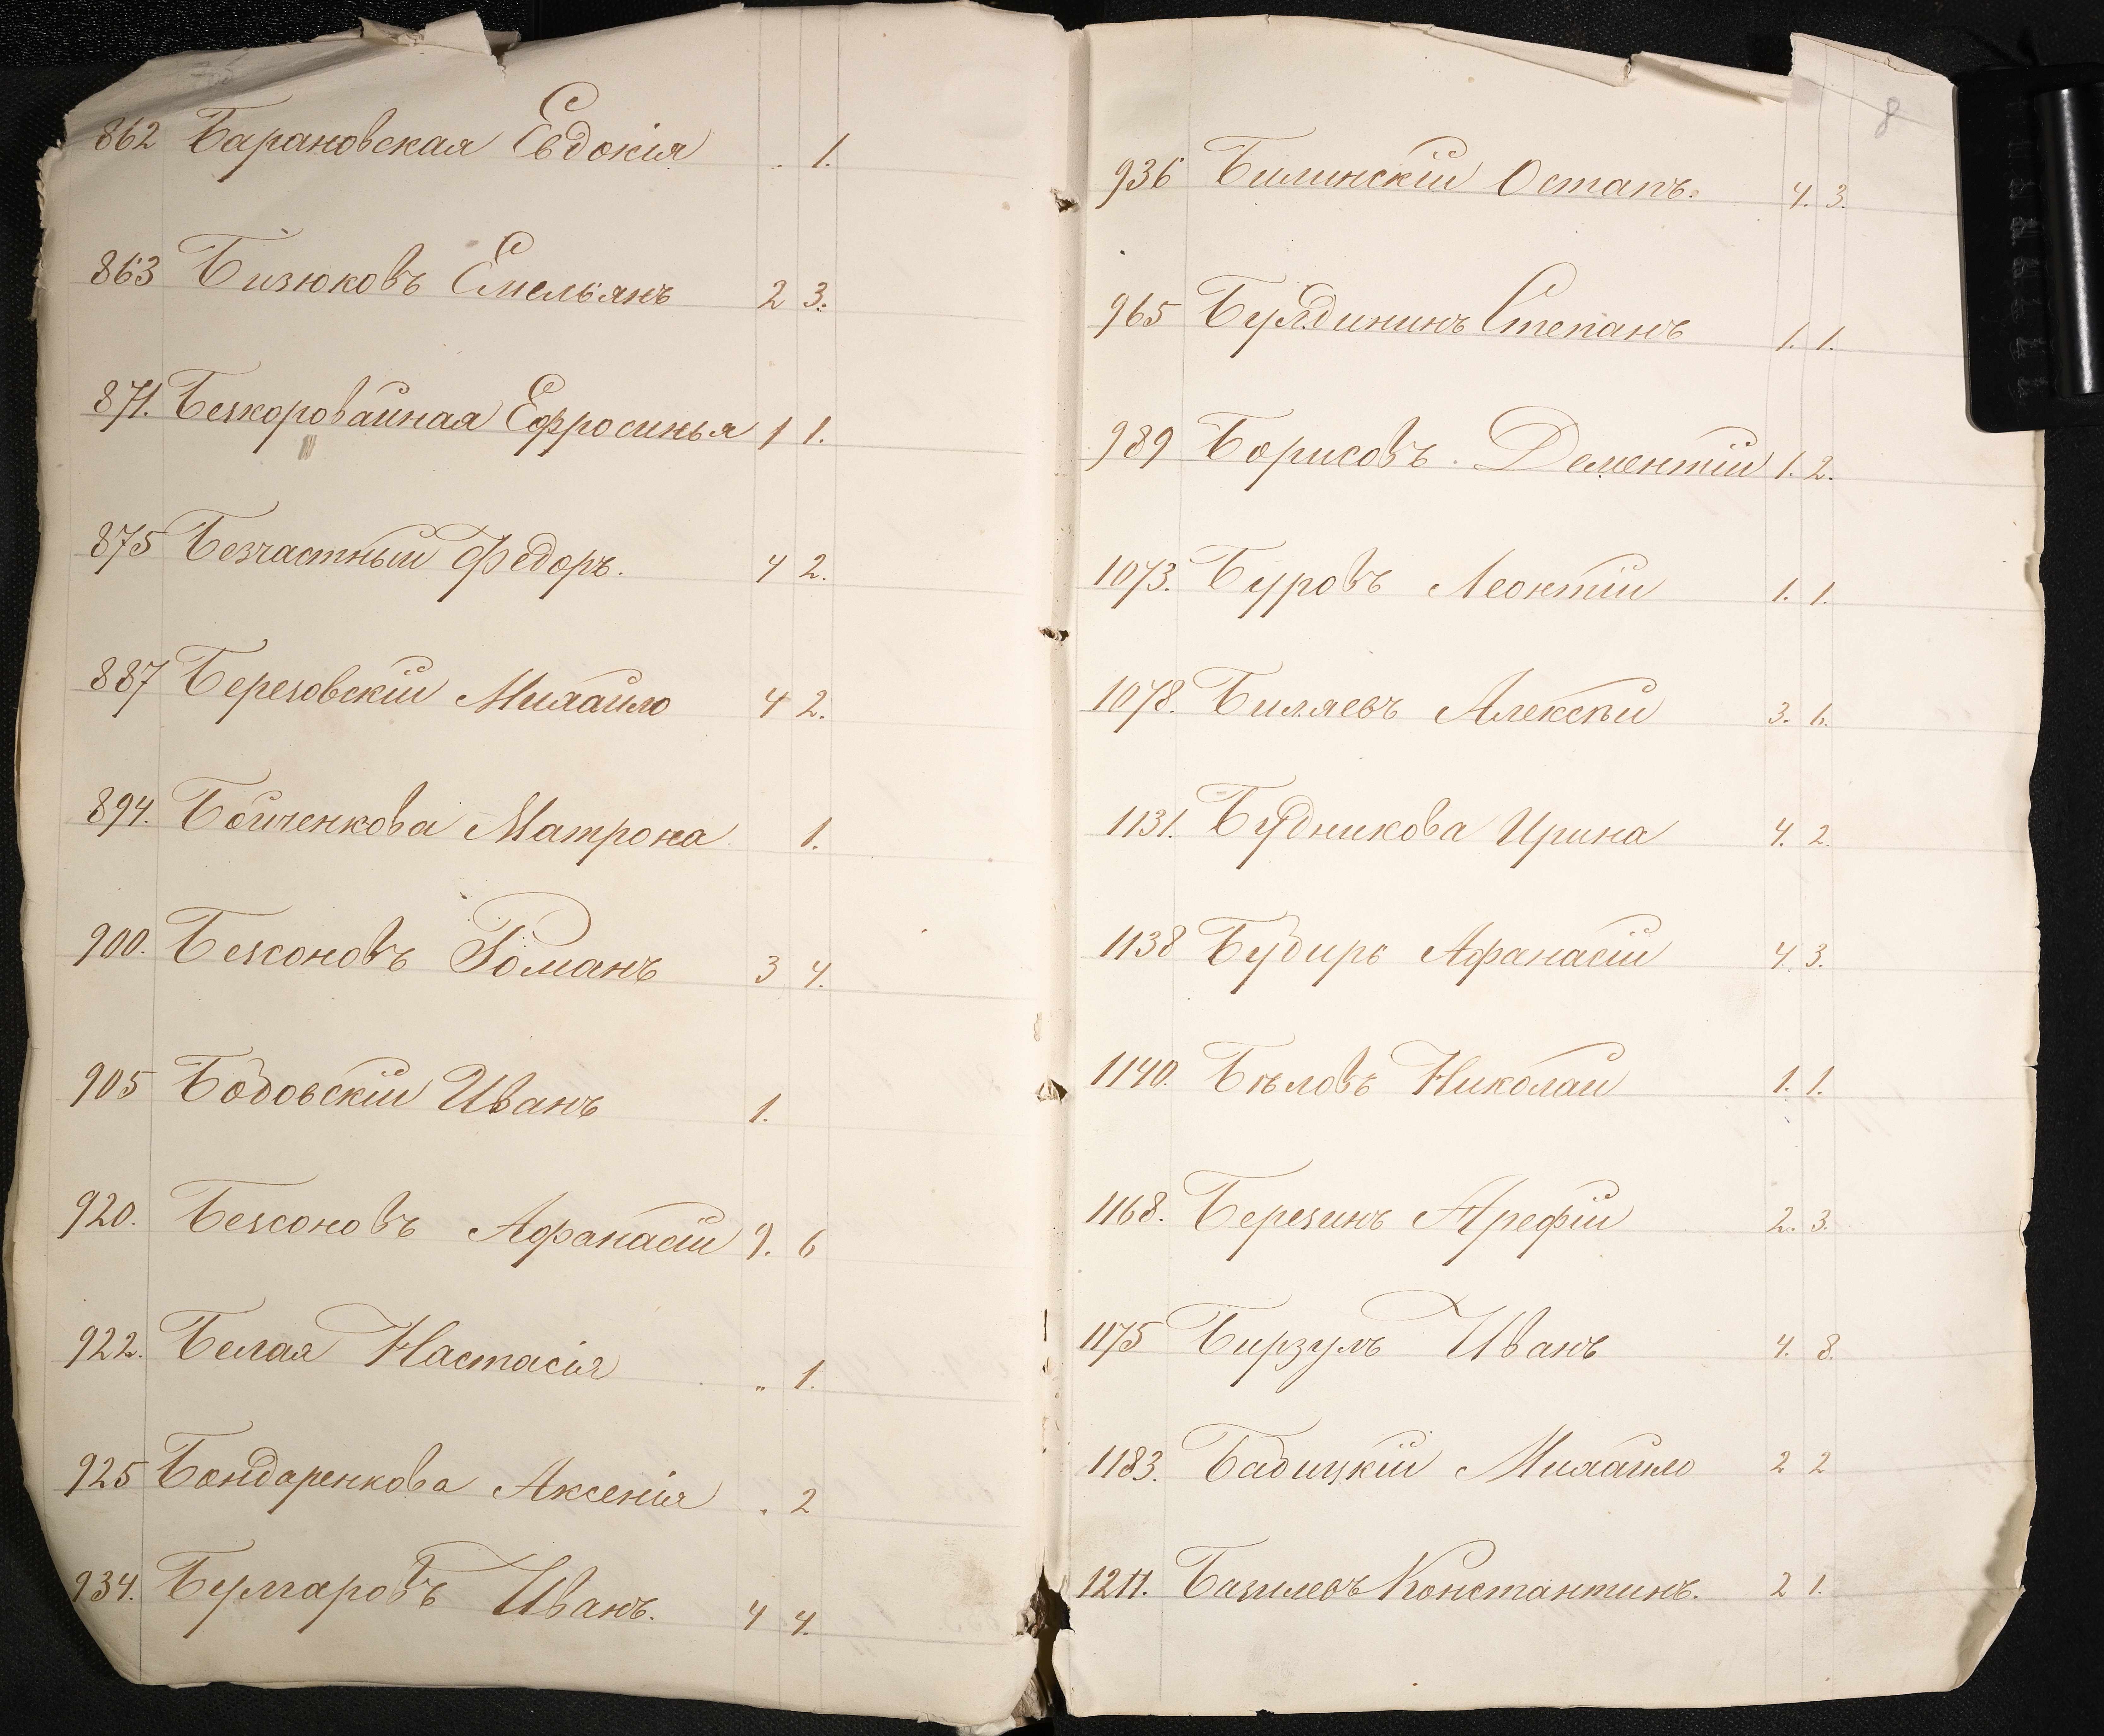 862 Барановская Евдокія . 1.
863 Бизюковъ Емельянъ 2 3.
871. Безкоровайная Ефросинья 1 1.
875 Безчастный Федоръ. 4 2.
887 Березовскій Михайло 4 2.
894. Бойченкова Матрона. 1.
900. Безсоновъ Романъ 3 4.
905 Бодовскій Иванъ 1.
920. Безсоновъ Афанасій 9. 6
922. Белая Настасія „ 1.
925 Бондаренкова Аксенія „ 2
934. Булгаровъ Иванъ. 4 4.
8
936 Билинскій Остапъ. 4. 3.
965 Степанъ 1. 1.
989 Борисовъ. Дементій 1. 2.
1073. Буровъ Леонтій 1. 1.
1078. Биляевъ Алексѣй 3. 6.
1131. Будникова Ирина 4. 2.
1138 Будиръ Афанасій 4. 3.
1140. Бѣловъ Николай 1. 1.
1168. Березинъ Арефій 2. 3.
1175 Бирзулъ Иванъ 4. 8.
1183. Бадицкій Михайло 2 2
1211. Базилевъ Константинъ. 2 1.